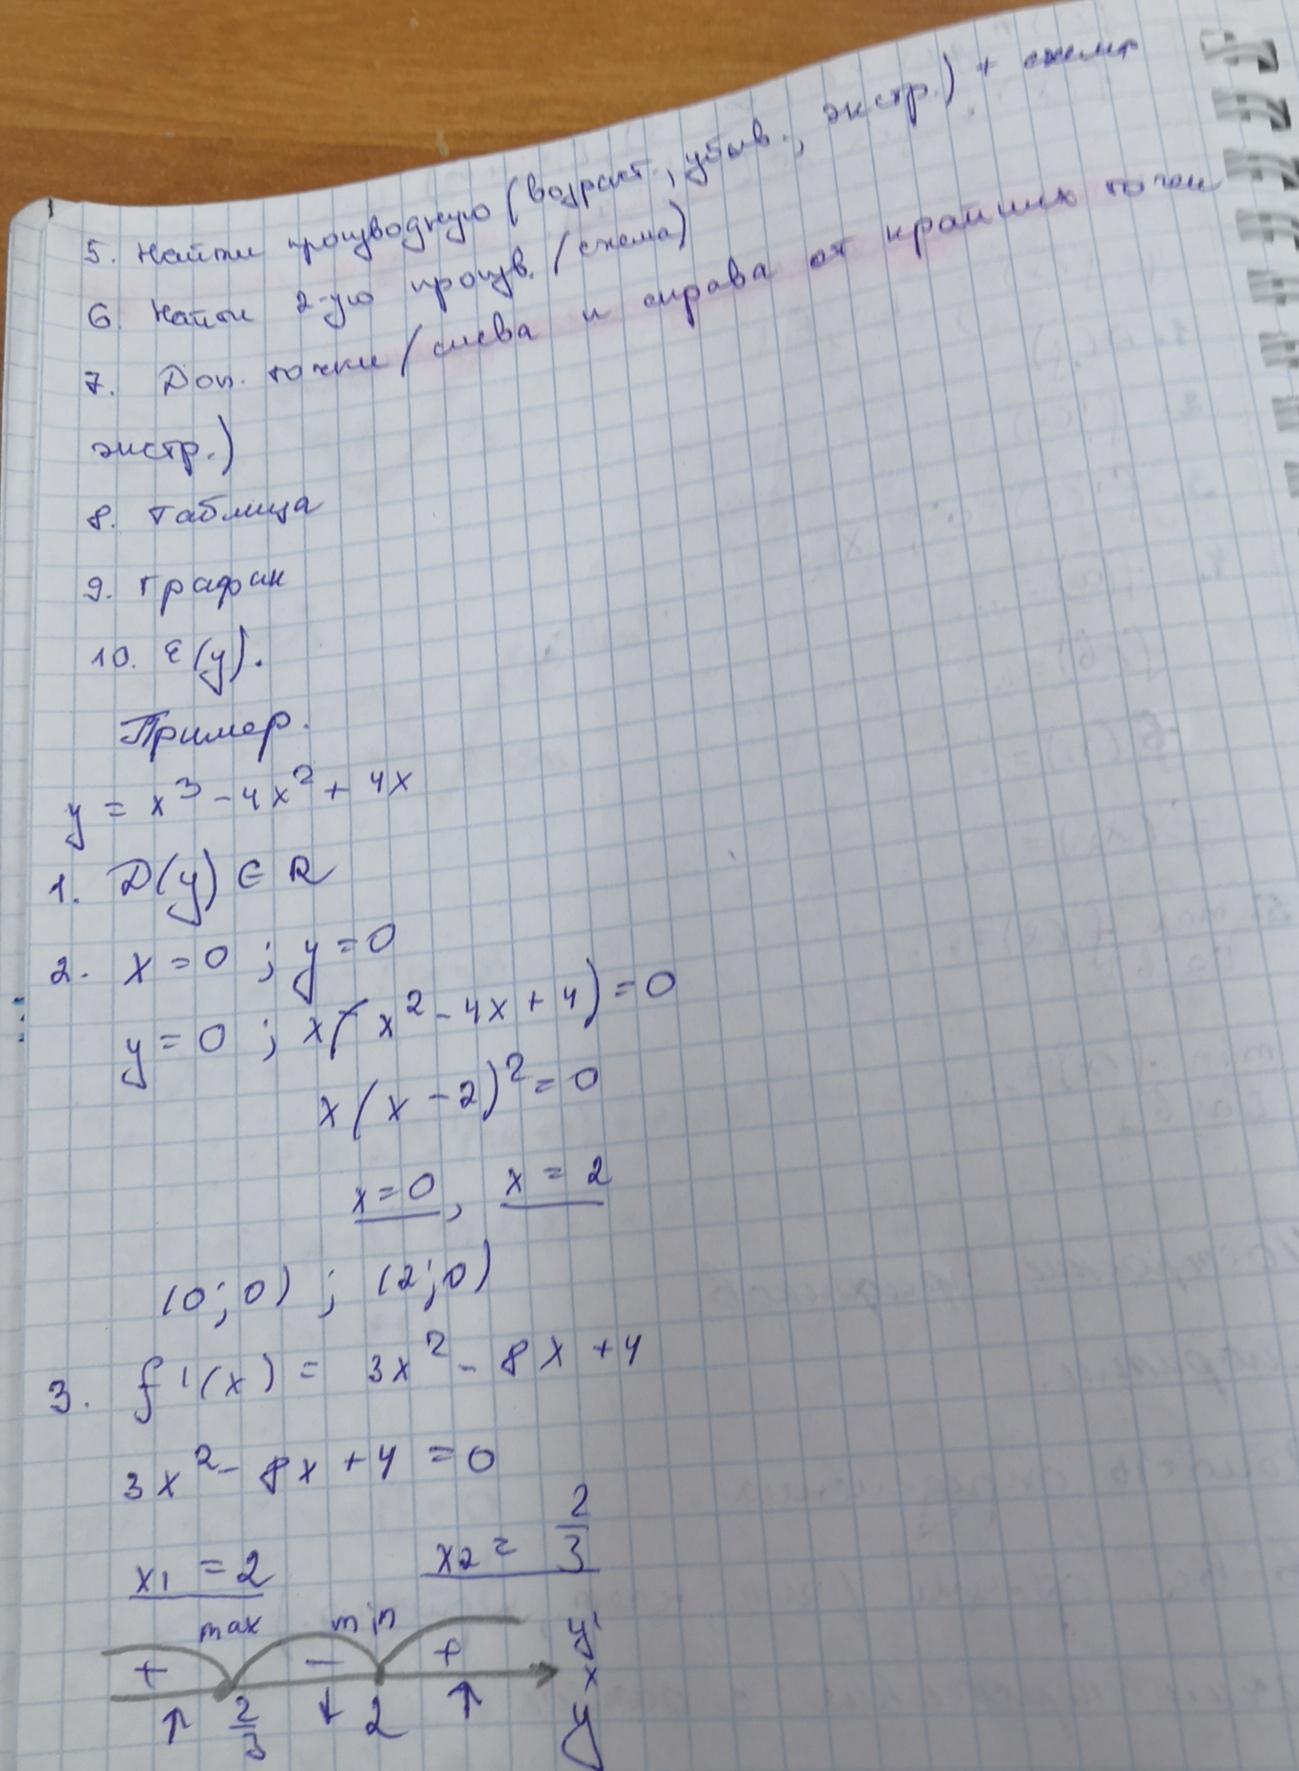 5. Найти производную (возраст., убыв., экстр.) + схема
6. Найти 2-ую произв. (схема)
7. Доп. точки (слева и справа от крайних точек
экстр.)
8. Таблица
9. График
10. E(y).
Пример.
y = x³ - 4x² + 4x
1. D(y) ∈ R
2. x = 0 ; y = 0
y = 0 ; x(x² - 4x + 4) = 0
x(x - 2)² = 0
x = 0, x = 2
(0; 0) ; (2; 0)
3. f'(x) = 3x² - 8x + 4
3x² - 8x + 4 = 0
x1 = 2 x2 = 2/3
max min y'
+ - + x
↑ 2/3 ↓ 2 ↑ y